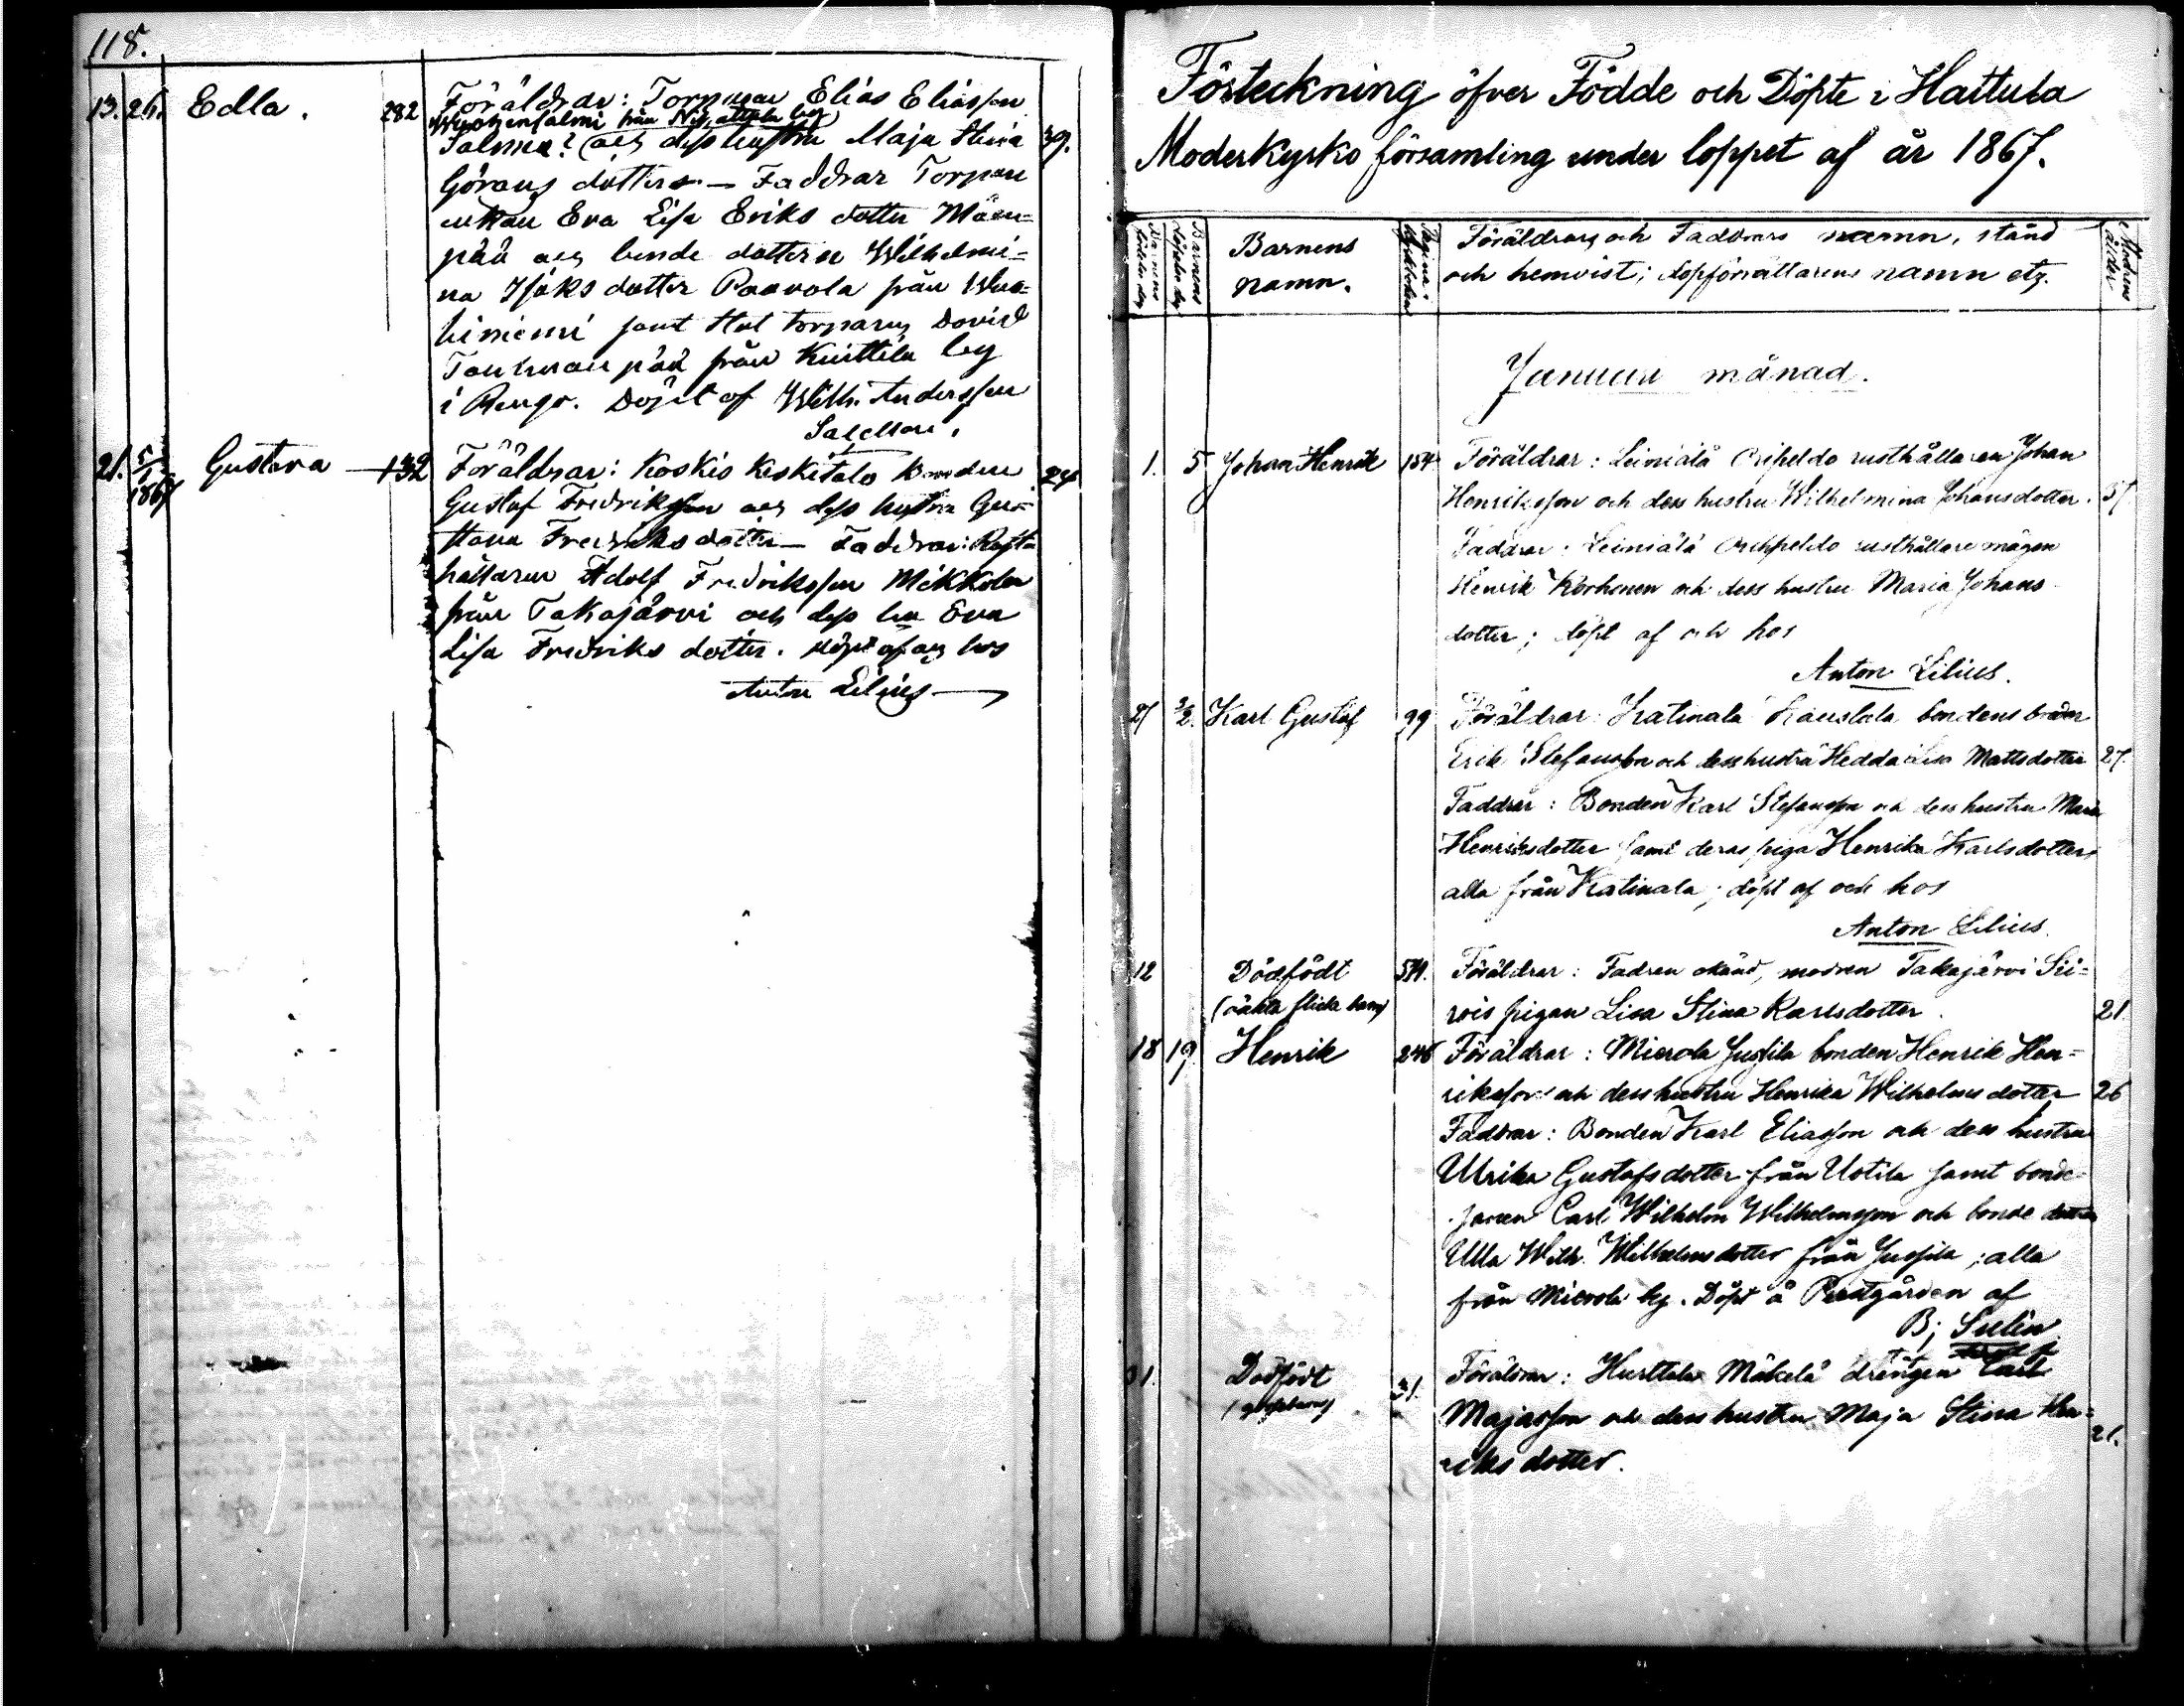 118.
13. 26. Edla. 282 Föräldrar: Torparen Elias Eliasson
från
Salmea? och dess hustru Maja Stina 39.
Görans dotter — Faddrar Torpare
enkan Eva Lisa Eriks dotter Mäen=
pää och bonde dottren Wilhelmi=
na Isaks dotter Paavola från Wua=
liniemi samt torparen David
från Kuittila by
i Rengo. Döpt af Wilh. Andersson
21. 5/1 1867 Gustava 132 Föräldrar: Koskis Keskitalo Bonden
Gustaf Fredriksson och dess hustru Gus=
tava Fredriksdotter — Faddrar: Rust=
hållaren Adolf Fredriksson Mikkola
från Takajärvi och dess hu Eva
Lisa Fredriks dotter. Döpt af och hos
Anton Lilius
Förteckning öfver Födde och Döpte i Hattula
Moderkyrko församling under loppet af år 1867.
Barnens födelse dag
Barnens döpelse dag
Barnens namn.
Pagina i
Föräldrars och Faddrars namn, stånd
och hemvist; döpförrättarens namn etz.
Modrens ålder
Januari månad.
1. 5 Johan Henrik 154 Föräldrar: Leiniälä rusthållaren Johan
Henriksson och dess hustru Wilhelmina Johansdotter. 37
Faddrar: Leiniälä rusthållare mågen
Henrik Korhonen och dess hustru Maria Johans
dotter; döpt af och hos
Anton Lilius.
27 3/2. Karl Gustaf 99 Föräldrar: Katinala bondens broder
Erik Stefansson och dess hustru Hedda Lisa Mattsdotter 27.
Faddrar: Bonden Karl Stefansson och dess hustru Maria
Henriksdotter samt deras piga Henrika Karlsdotter
alla från Katinala; döpt af och hos
Anton Lilius.
12 Dödfödt 571. Föräldrar: Fadren okänd, modren Takajärvi Sii=
(oäkta flicka barn) rois pigan Lisa Stina Karlsdotter. 21
18 19 Henrik 246 Föräldrar: Mierola Jussila bonden Henrik Hen=
riksson och dess hustru Henrika Wilhelms dotter 26
Faddrar: Bonden Karl Eliasson och dess hustru
Ulrika Gustafsdotter från Uotila samt bonde
sonen Carl Wilhelm Wilhelmsson och bonde dottren
Ulla Wilh. Wilhelmsdotter från Jussila; alla
från Mierola by. Döpt å Prestgården af
Bj Sulin
31. Dödfödt 31. Föräldrar: Hurttala Mäkelä drängen Carl
(gossebarn) Majasson och dess hustru Maja Stina Hen= 21.
riks dotter.